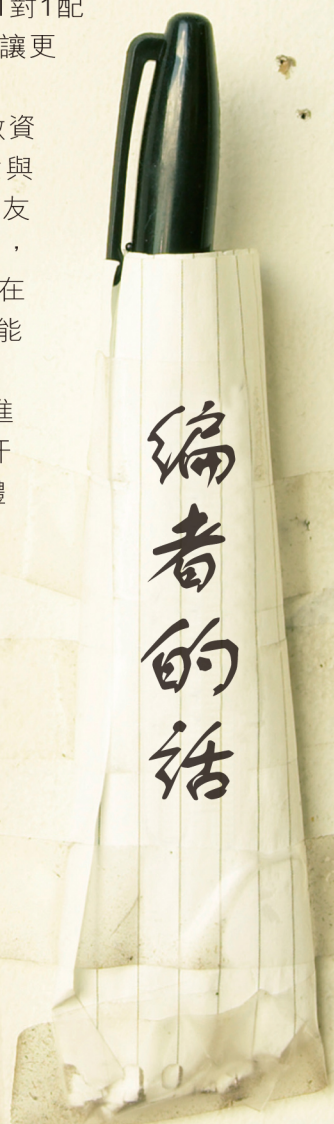 1對1配
讓更
資
與
友
，
在
能
編者的話